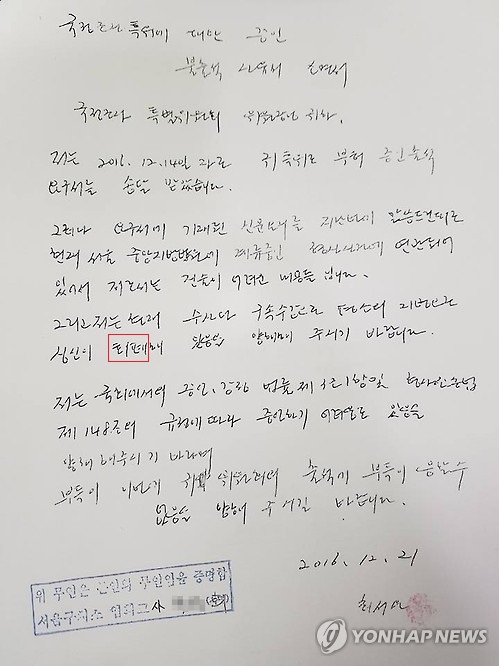 국정조사 특위에 대한 증인
불출석 사유서 소명서
국정조사 특별위원회 위원장님 귀하.
저는 2016. 12. 14일 자로 귀 특위로 부터 증인출석
요구서를 송달 받았습니다.
그러나 요구서에 기재된 신문요지를 지난번에 말씀드린대로
현재 서울 중앙지방법원에 계류중인 형사사건에 연관되어
있어서 저로서는 진술이 어려운 내용들 입니다.
그리고 저는 현재 수사와 구속수감으로 평소의 지병으로
심신이 회폐해 있음을 양해해 주시기 바랍니다.
저는 국회에서의 증언, 감정 법률 제3조1항 및 형사소송법
제148조의 규정에 따라 증언하기 어려운 있음을
양해 해주시기 바라며
부득이 이번에 귀 위원회의 출석에 부득이 응할수
없음을 양해 주시길 바랍니다.
2016. 12. 21
최서원
위 무인은 본인의 무인임을 증명함
서울구치소 법의그사
YONHAP NEWS